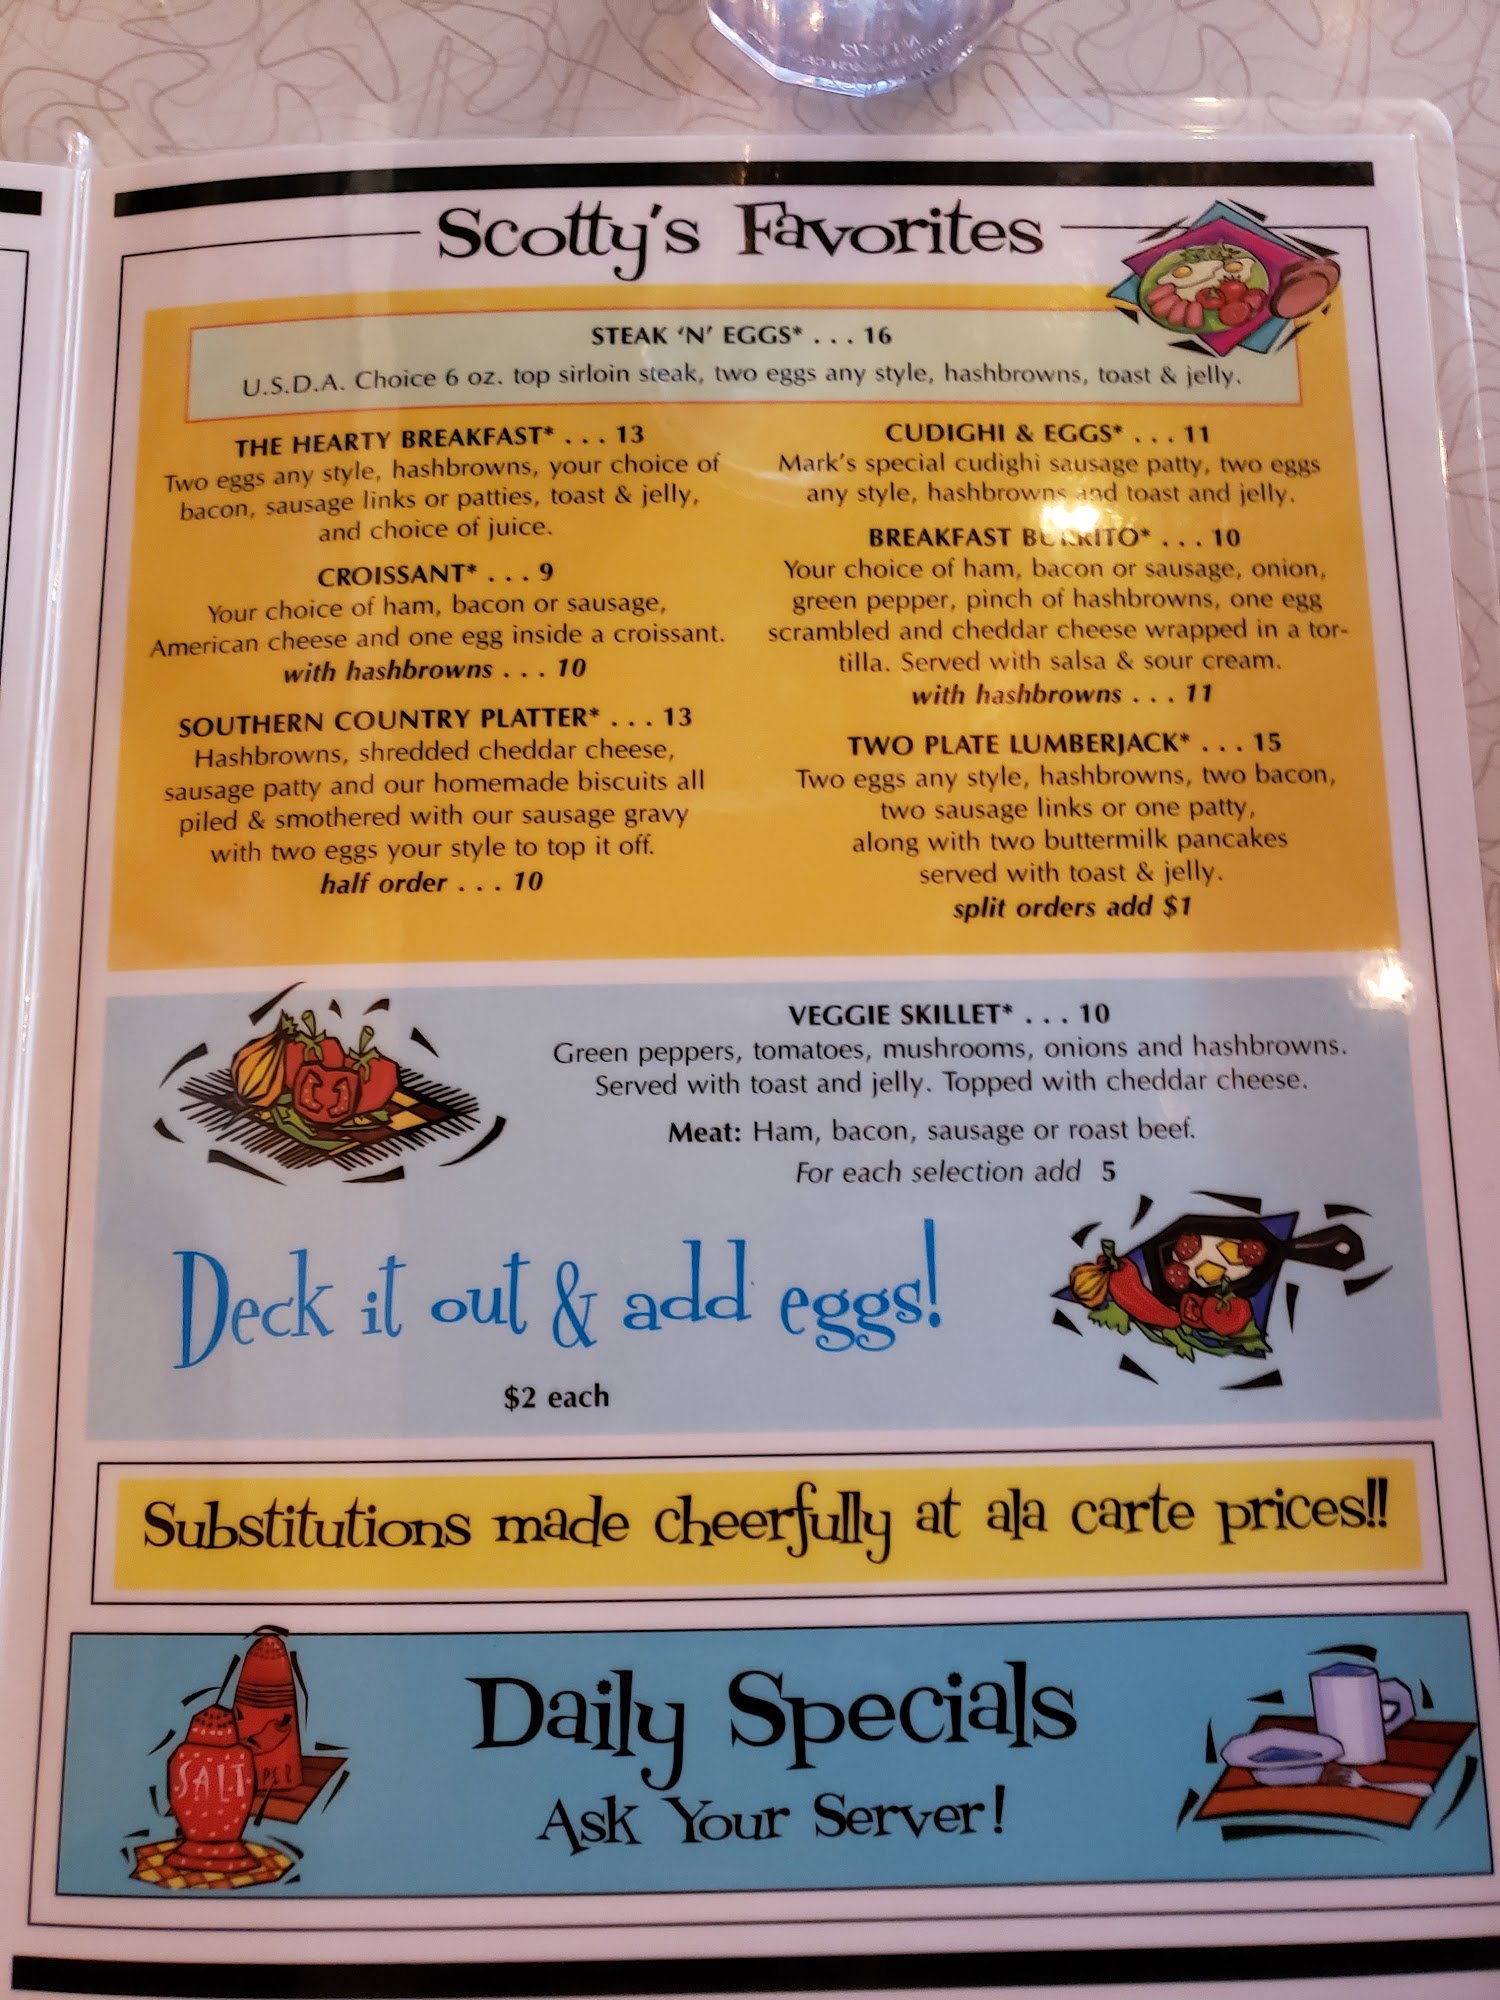 Scotty's Favorites
STEAK 'N' EGGS* . . . 16
U.S.D.A. Choice 6 oz. top sirloin steak, two eggs any style, hashbrowns, toast & jelly.
THE HEARTY BREAKFAST* . . . 13
Two eggs any style, hashbrowns, your choice of
bacon, sausage links or patties, toast & jelly,
and choice of juice.
CROISSANT* . . . 9
Your choice of ham, bacon or sausage,
American cheese and one egg inside a croissant.
with hashbrowns . . . 10
SOUTHERN COUNTRY PLATTER* . . . 13
Hashbrowns, shredded cheddar cheese,
sausage patty and our homemade biscuits all
piled & smothered with our sausage gravy
with two eggs your style to top it off.
half order . . . 10
CUDIGHI & EGGS* . . . 11
Mark's special cudighi sausage patty, two eggs
any style, hashbrowns and toast and jelly.
BREAKFAST BURRITO* . . . 10
Your choice of ham, bacon or sausage, onion,
green pepper, pinch of hashbrowns, one egg
scrambled and cheddar cheese wrapped in a tor-
tilla. Served with salsa & sour cream.
with hashbrowns . . . 11
TWO PLATE LUMBERJACK* . . . 15
Two eggs any style, hashbrowns, two bacon,
two sausage links or one patty,
along with two buttermilk pancakes
served with toast & jelly.
split orders add $1
VEGGIE SKILLET* . . . 10
Green peppers, tomatoes, mushrooms, onions and hashbrowns.
Served with toast and jelly. Topped with cheddar cheese.
Meat: Ham, bacon, sausage or roast beef.
For each selection add 5
Deck it out & add eggs!
$2 each
Substitutions made cheerfully at ala carte prices!!
SALT
Daily Specials
Ask Your Server!